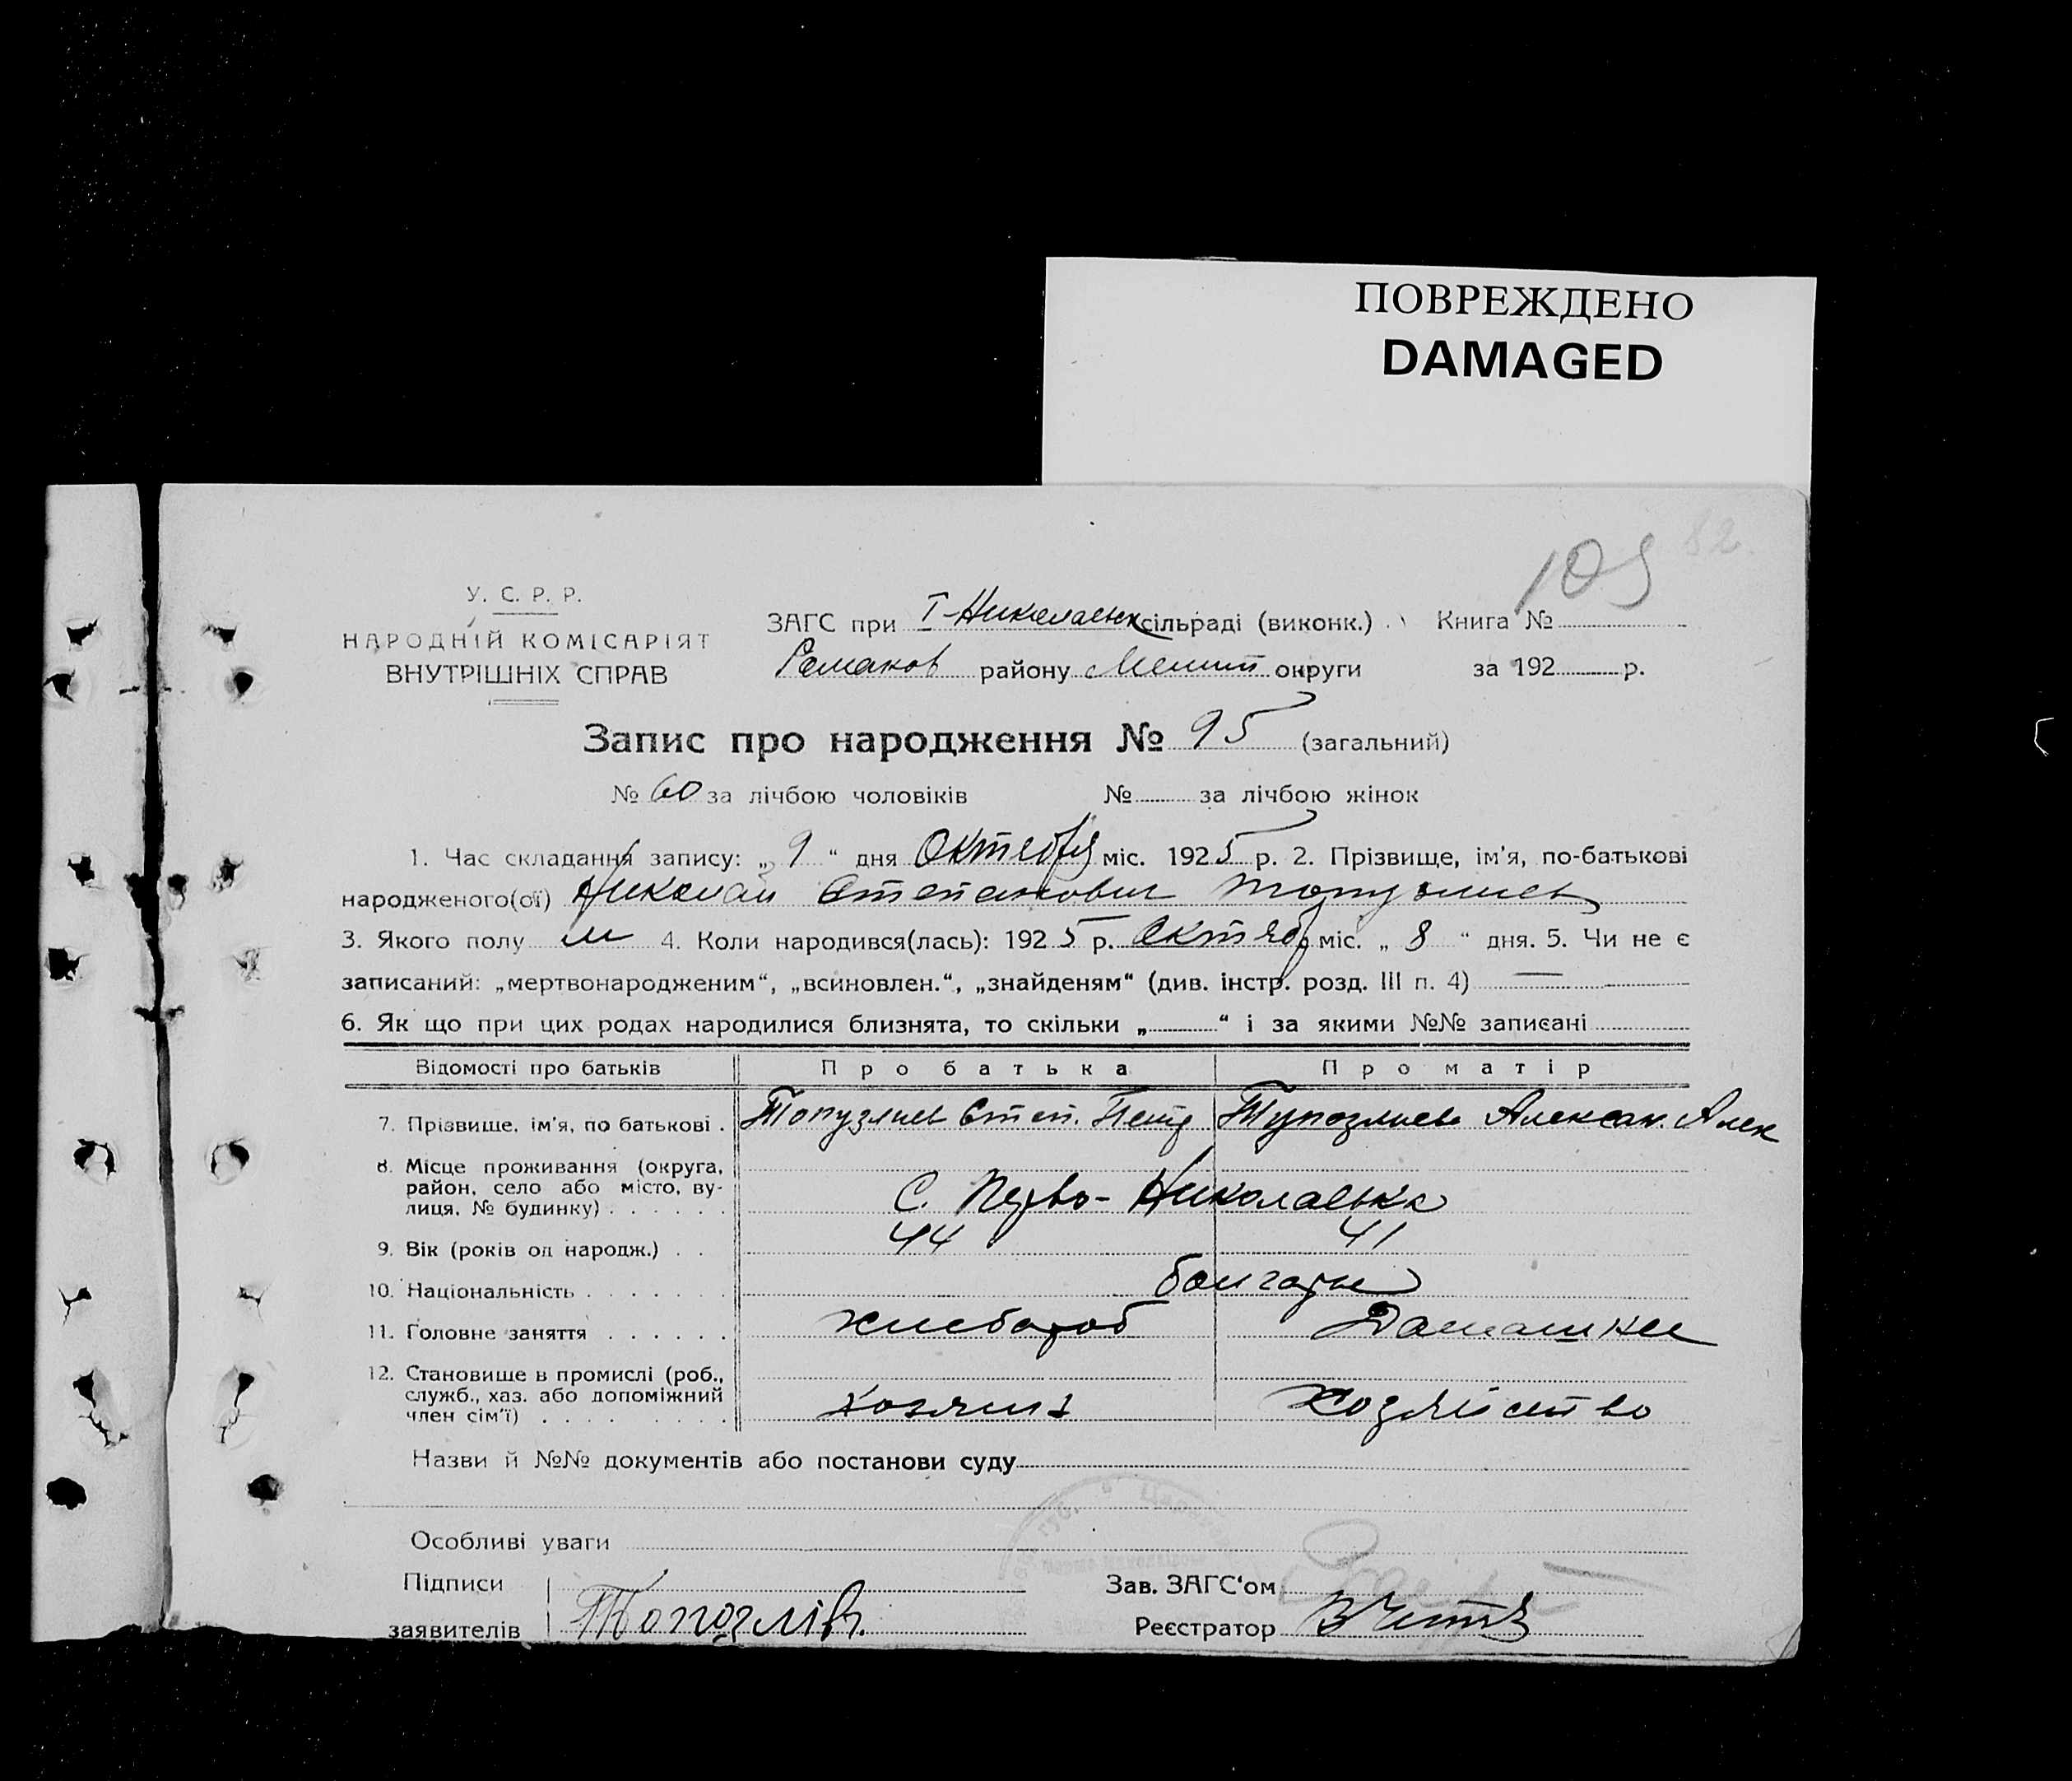 ПОВРЕЖДЕНО
DAMAGED
82.
105
У. С. Р. Р.
НАРОДНІЙ КОМІСАРІЯТ
ВНУТРІШНІХ СПРАВ
ЗАГС при І-Николаевк сільраді (виконк.) Книга №
району Мелит округи за 192 р.
Запис про народження № 95 (загальний)
№ 60 за лічбою чоловіків № за лічбою жінок
1. Час складання запису: „ 9 “ дня Октября міс. 1925 р. 2. Прізвище, ім'я, по-батькові
народженого(ої) Николай Степанович Топузлиев
3. Якого полу м 4. Коли народився(лась): 1925 р. Октяб міс. „ 8 “ дня. 5. Чи не є
записаний: „мертвонародженим“, „всиновлен.“, „знайденям“ (див. інстр. розд. III п. 4) —
6. Як що при цих родах народилися близнята, то скільки „ “ і за якими №№ записані
Відомості про батьків Про батька Про матір
7. Прізвище, ім'я, по батькові . Топузлиев Степ. Петр Тупозлиева Александ. Алек
8. Місце проживання (округа,
район, село або місто, ву-
лиця, № будинку) . . . . . . С. Перво-Николаевка
9. Вік (років од народж.) . . 44 41
10. Національність . . . . . . . болгары
11. Головне заняття . . . . . . хлебороб Домашнее
12. Становище в промислі (роб.,
служб., хаз. або допоміжний
член сім'ї) . . . . . . . . хозяин хозяйство
Назви й №№ документів або постанови суду
Особливі уваги
Підписи Зав. ЗАГС'ом
заявителів Топозлів. Реєстратор